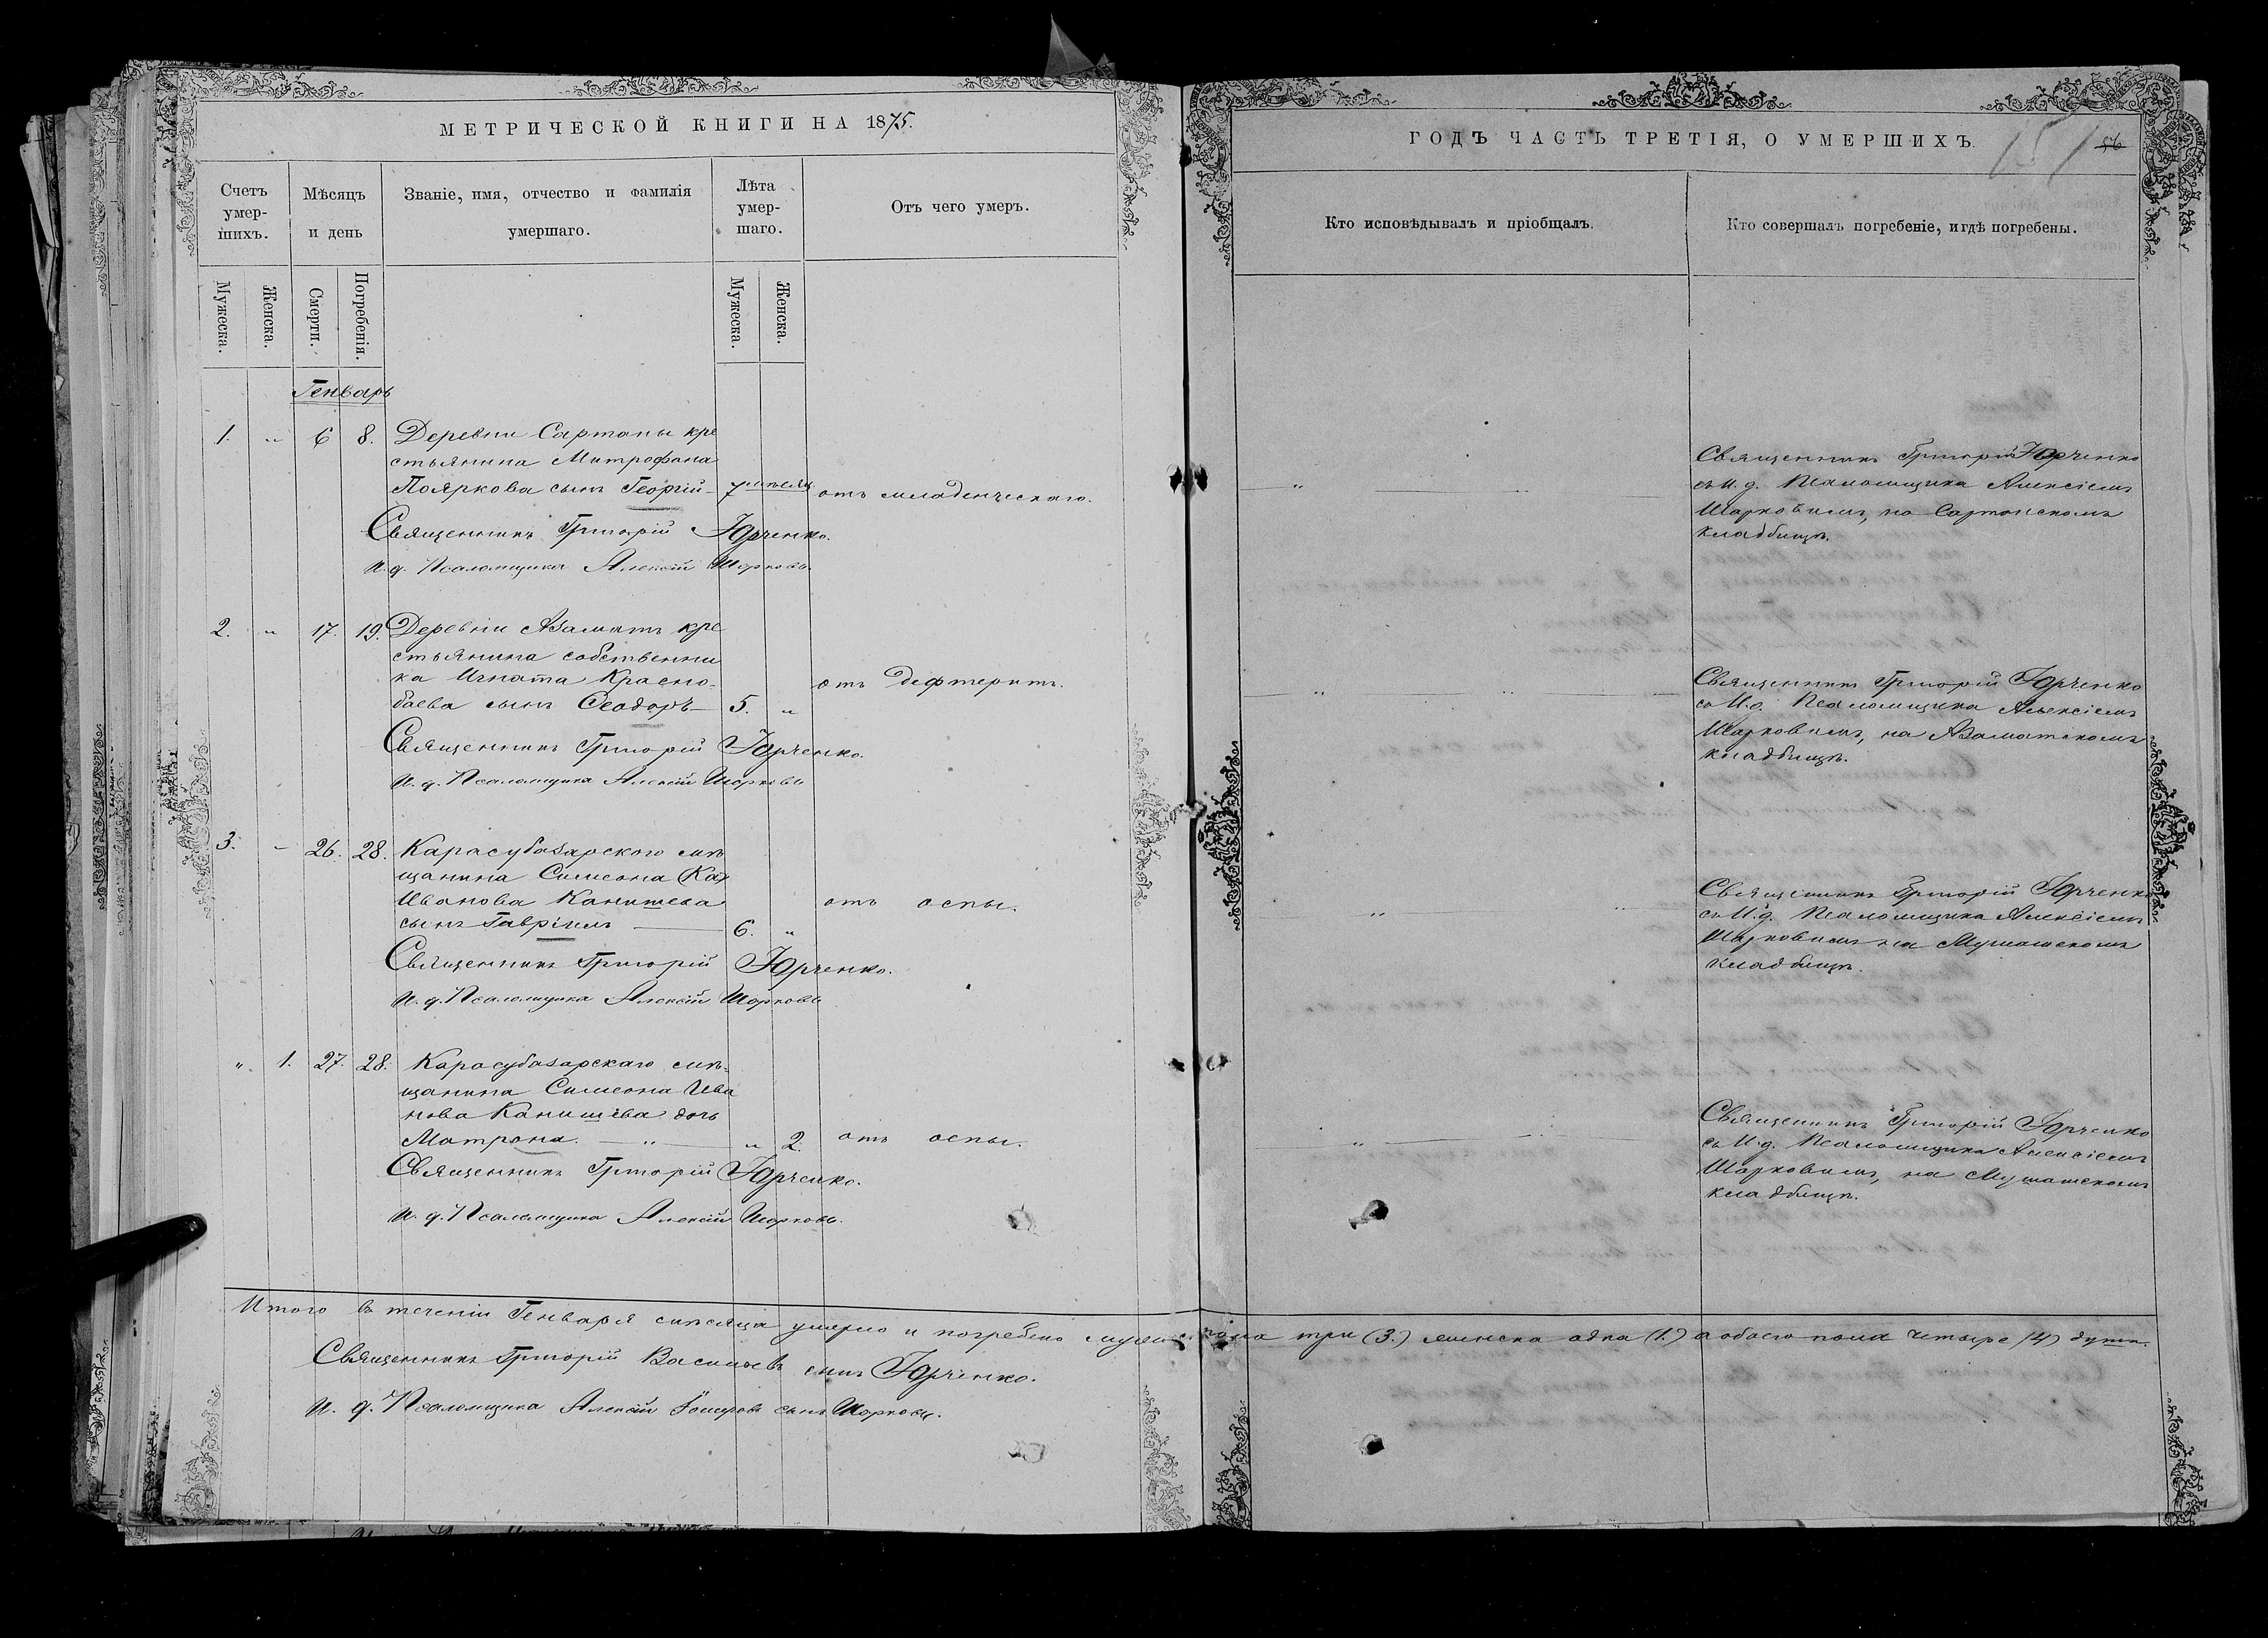 МЕТРИЧЕСКОЙ КНИГИ НА 1875.
Счетъ умер-шихъ.
Мѣсяцъ и день
Званіе, имя, отчество и фамилія умершаго.
Лѣта умер-шаго.
Отъ чего умеръ.
Мужеска.
Женска.
Смерти.
Погребенія.
Мужеска.
Женска.
Генварь
1. " 6 8. Деревни Сартаны кре
стьянина Митрофана
Пояркова сынъ Георгій — 7 мѣсяц. отъ младенческаго.
Священникъ Григорій Юрченко.
И. д. Псаломщика Алексій Шарковъ.
2. " 17. 19. Деревни Азаматъ кре
стьянина собственни
ка Игната Красно-
баева сынъ Ѳеодоръ — 5. " отъ дефтеритъ.
Священникъ Григорій Юрченко.
И. д. Псаломщика Алексій Шарковъ
3. - 26. 28. Карасубазарского мѣ
щанина Симеона (Ка)
Иванова Канишева
сынъ Гавріилъ — 6. " отъ оспы.
Священникъ Григорій Юрченко.
И. д. Псаломщика Алексій Шарковъ
" 1. 27. 28. Карасубазарскаго мѣ-
щанина Симеона Ива
нова Канишева дочь
Матрона. — " — " 2. отъ оспы.
Священникъ Григорій Юрченко.
И. д. Псаломщика Алексій Шарковъ.
Итого въ теченіи Генваря мѣсяца умерло и погребено мужес. пола три (3.) женска одна (1.) а обоего пола четыре (4) душъ.
Священникъ Григорій Васильевъ сынъ Юрченко.
И. д. Псаломщика Алексій сынъ Шарковъ.
ГОДЪ ЧАСТЬ ТРЕТІЯ, О УМЕРШИХЪ.
151
56
Кто исповѣдывалъ и пріобщалъ.
Кто совершалъ погребеніе, и гдѣ погребены.
Священникъ Григорій Юрченко
съ И. д. Псаломщика Алексіемъ
Шарковымъ, на Сартанскомъ
кладбищѣ.
Священникъ Григорій Юрченко
съ И. д. Псаломщика Алексіемъ
Шарковымъ, на Азаматскомъ
кладбищѣ.
Священникъ Григорій Юрченко
съ И. д. Псаломщика Алексіемъ
Шарковымъ на Мушашскомъ
кладбищѣ.
Священникъ Григорій Юрченко
съ И. д. Псаломщика Алексіемъ
Шарковымъ, на Мушашскомъ
кладбищѣ.